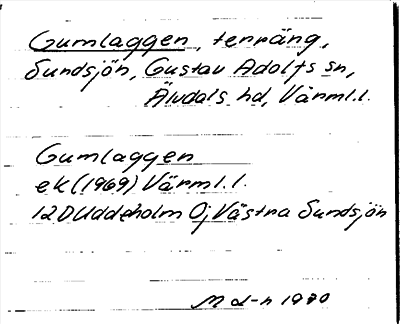 Gumlaggen, terräng,
Sundsjön, Gustav Adolfs sn,
Älvdals hd, Värml.l.
Gumlaggen
ek (1969) Värml.l.
12D Uddeholm 0j Västra Sundsjön
M d-n 1970